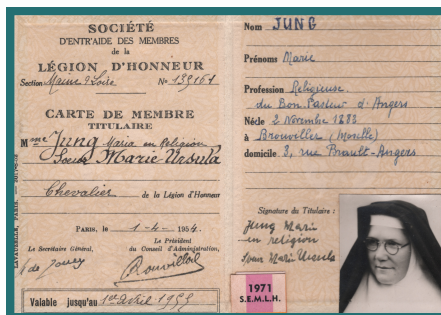 SOCIÉTÉ
D'ENTR'AIDE DES MEMBRES
de la
LÉGION D'HONNEUR
Section Maine & Loire N° 139161
CARTE DE MEMBRE
TITULAIRE
Mme Jung Maria en Religion
Soeur Marie Ursula
Chevalier de la Légion d'Honneur
PARIS, le 1-4-1954.
Le Secrétaire Général,
Le Président
du Conseil d'Administration,
Valable jusqu'au 1er Avril 1955
Nom JUNG
Prénoms Marie
Profession Religieuse
du Bon Pasteur d'Angers
Né le 2 Novembre 1883
à Brouviller (Moselle)
domicile 3, rue Brault-Angers
Signature du Titulaire :
Jung Marie
en religion
Soeur Marie Ursula
1971
S.E.M.L.H.